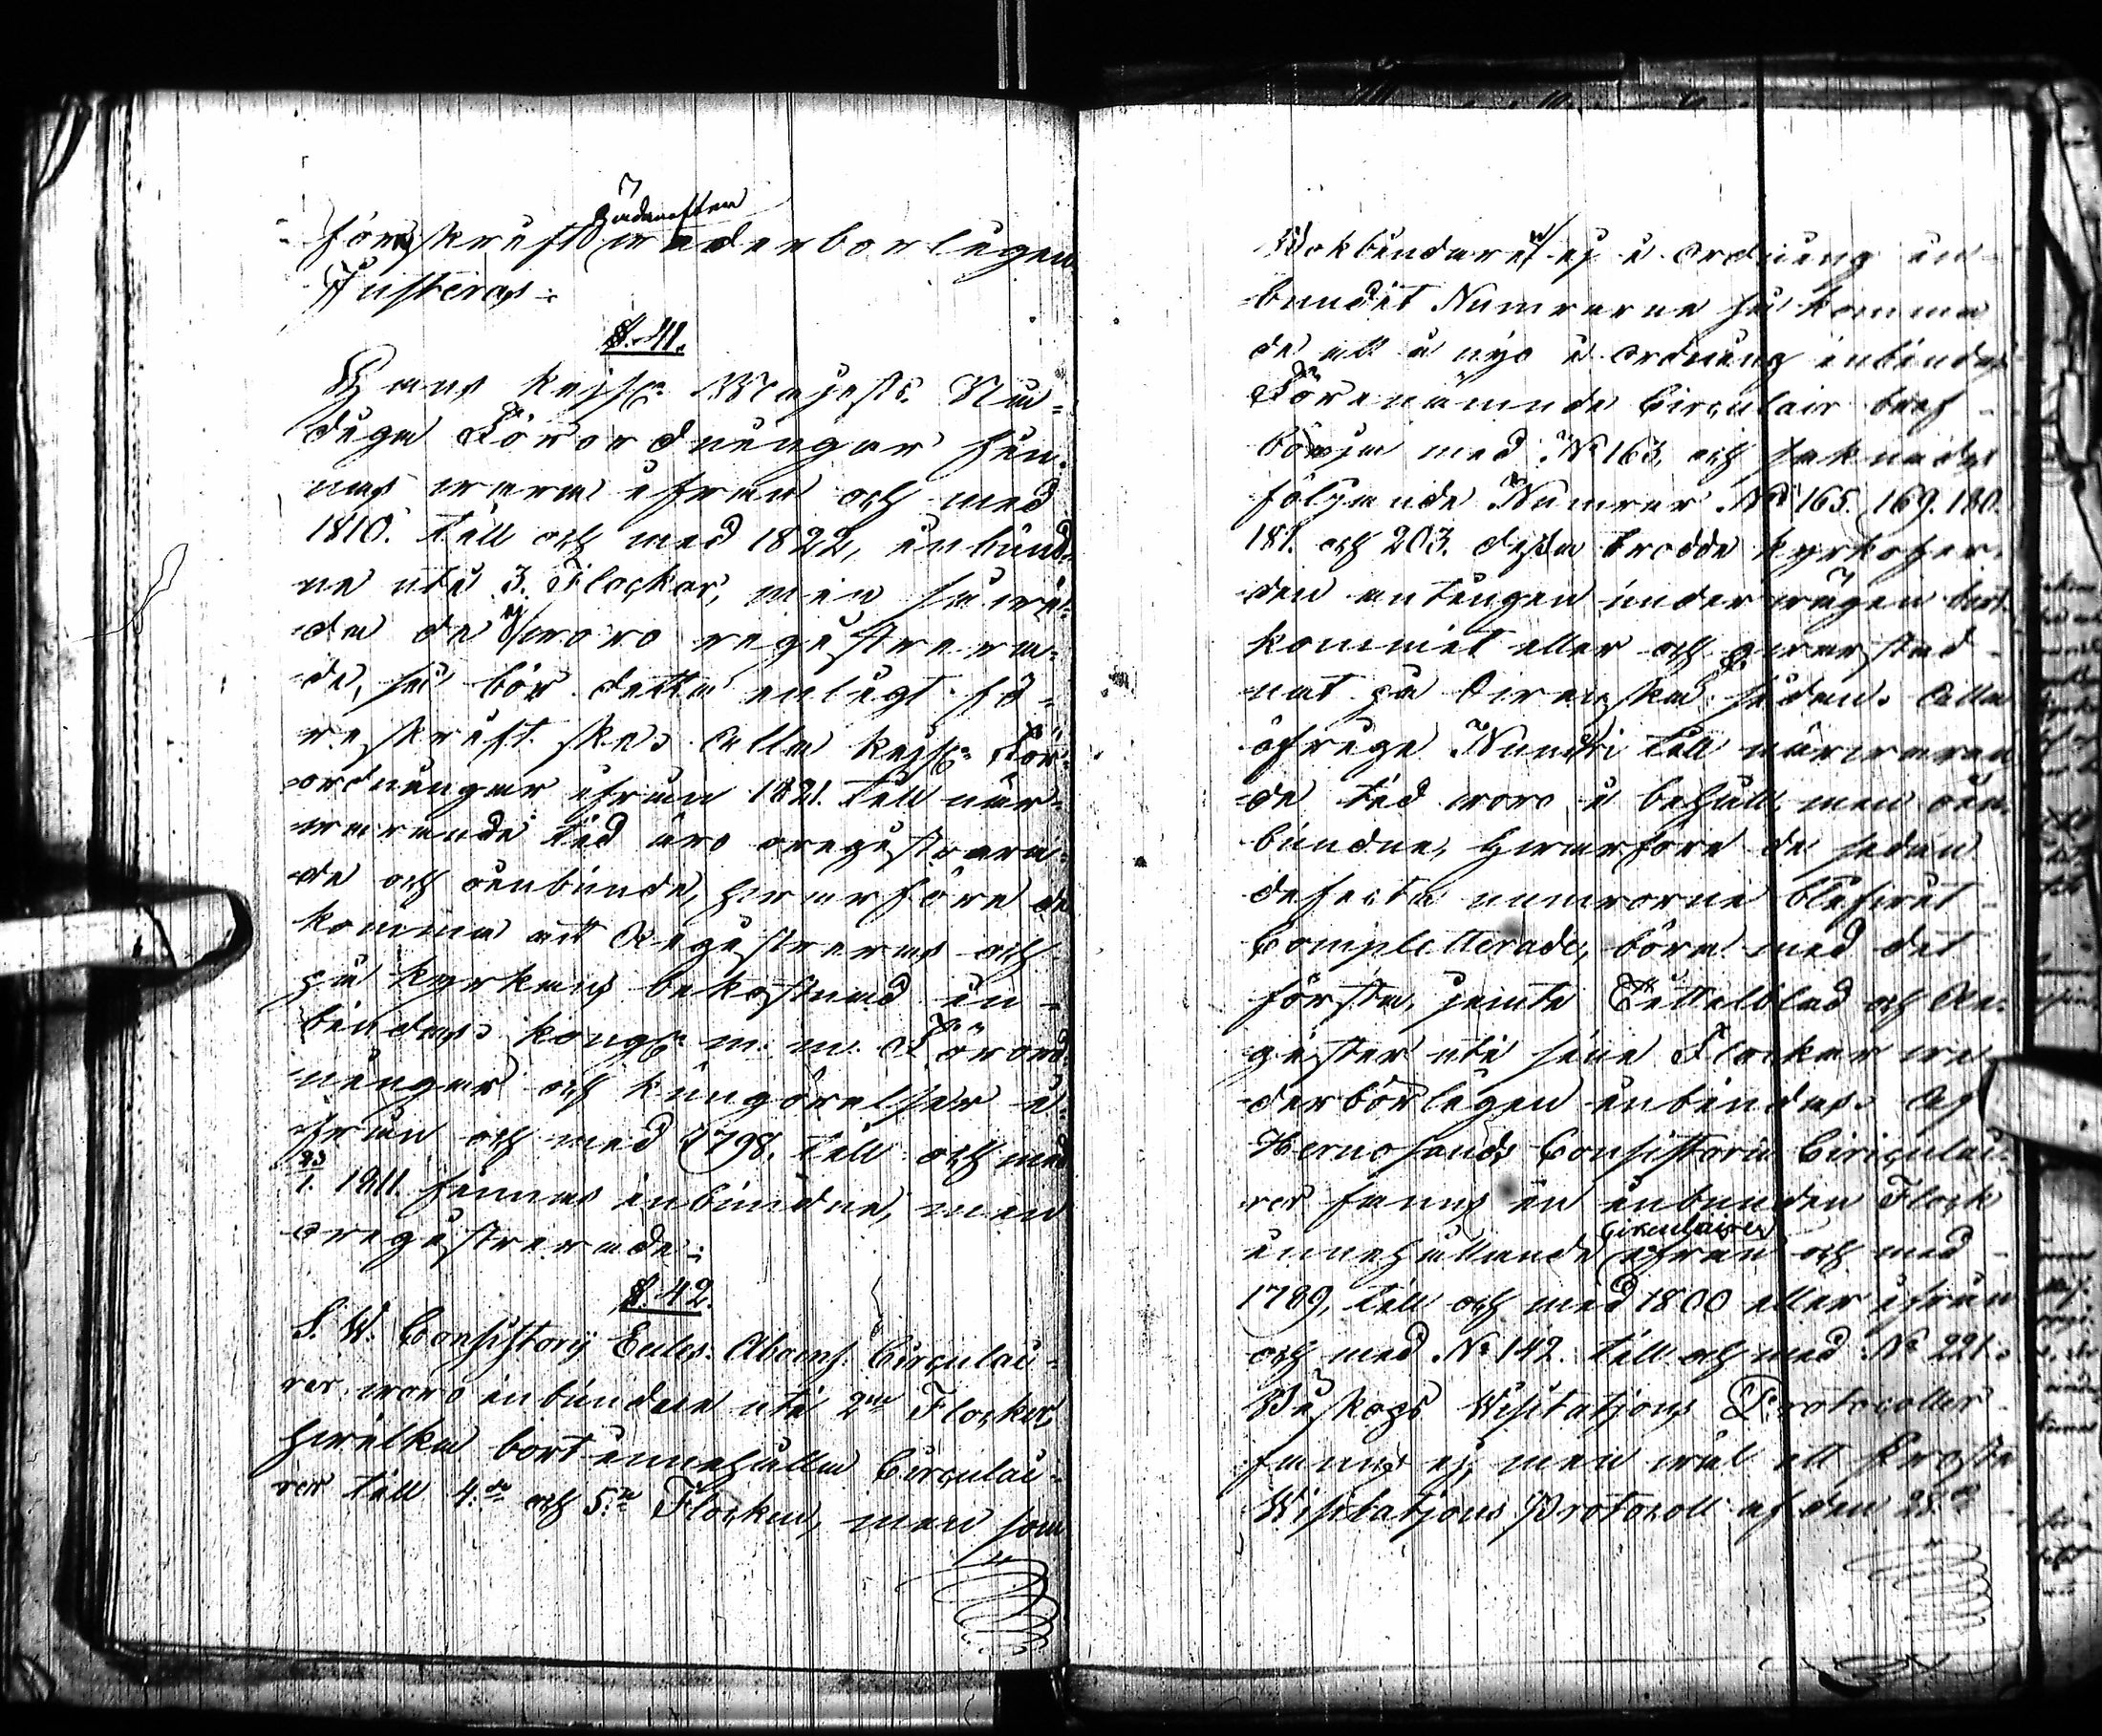 förskrift hädanefter wederbörligen
Justeras.
§. 41.
Hans Kejsl. Majests. Nå-
diga Förordningar fin-
nas wara ifrån och med
1810. till och med 1822, inbund-
ne uti 3. Flockar, men som i-
da de ej woro registrera-
de, så bör detta enligt fö-
reskrift ske. Alla Kejsl. För-
ordningar ifrån 1821. till när-
warande tid äro oregistrera-
de och oinbundne, hwarföre de
komma att Registreras och
på kyrkans bekostnad in-
bindas. Kongl. m. m. Förord-
ningar och kungörelser i-
från och med 1798. till och med
23/1. 1811. finnas inbundne, men
oregistrerade.
§. 42.
S. W. Consistorij Eccles. Aboens. Circulai-
rer woro inbundne uti 2ne Flockar,
hwilka bort innehålla Circulai-
rer till 4de och 5te Flocken, men som
Bokbindaren ej i ordning in-
bundit Numrorne så komma
de att å nyo i ordning inbindas
Förenämnde Circulair bref
börja med No 163, och saknades
följande Numror No 165. 169. 180.
181. och 203. dessa trodde Kyrkoher-
den antingen under wägen bort-
kommit eller och qwarstad-
nat på Swenska sidan. Alla
öfrige Numror till närwaran-
de tid woro i behåll, men oin-
bundne, hwarföre de sedan
defecta numrorne blifwit
Completterade, böra med det
första, jemte Tittelblad och Re-
gister uti sine Flockar we-
derbörligen inbindas. Af
Hernosands Consistorii Circulai-
rer fanns en inbunden Flock
innehållande Circulairer ifrån och med
1789, till och med 1800 eller ifrån
och med No 142. till och med No 221.
Biskops Wisitations Protocoller
fanns ej, men wäl ett Prosta
Wisitations Protocoll af den 28de